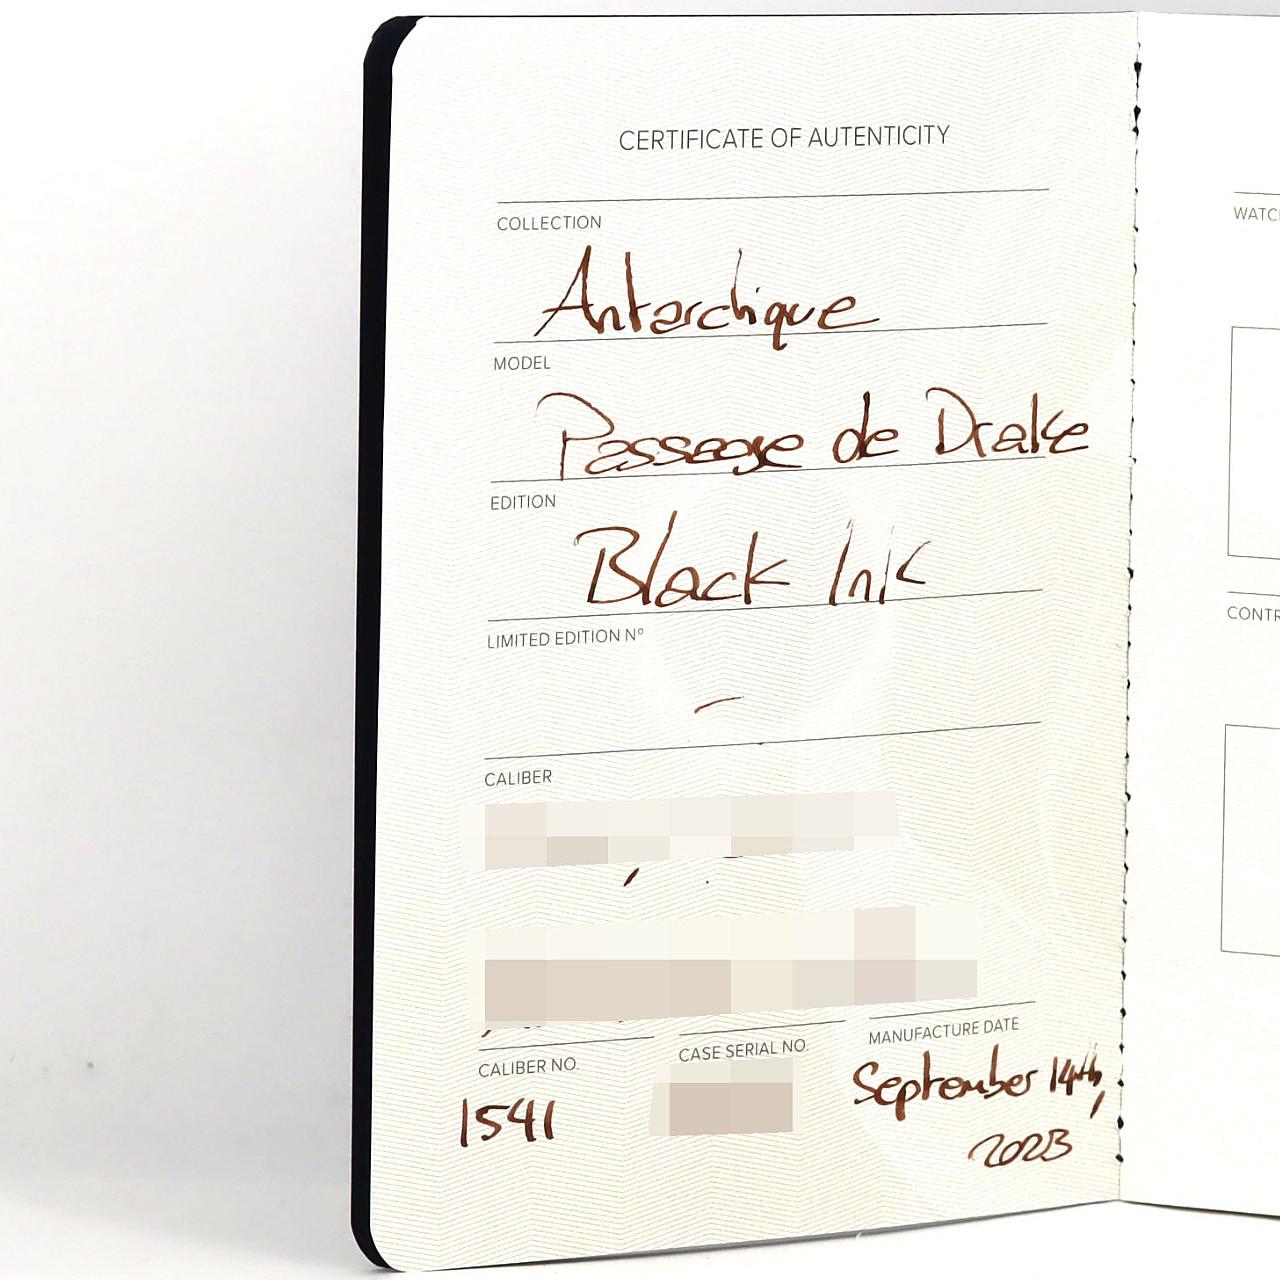 CERTIFICATE OF AUTENTICITY
COLLECTION
Antarctique
MODEL
Passage de Drake
EDITION
Black Ink
LIMITED EDITION Nº
—
CALIBER
CALIBER NO.
1541
CASE SERIAL NO.
MANUFACTURE DATE
September 14th,
2023
WATC
CONTR